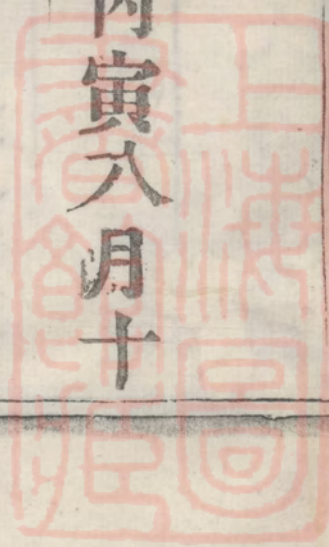 丙寅八月十
上海圖
書館藏